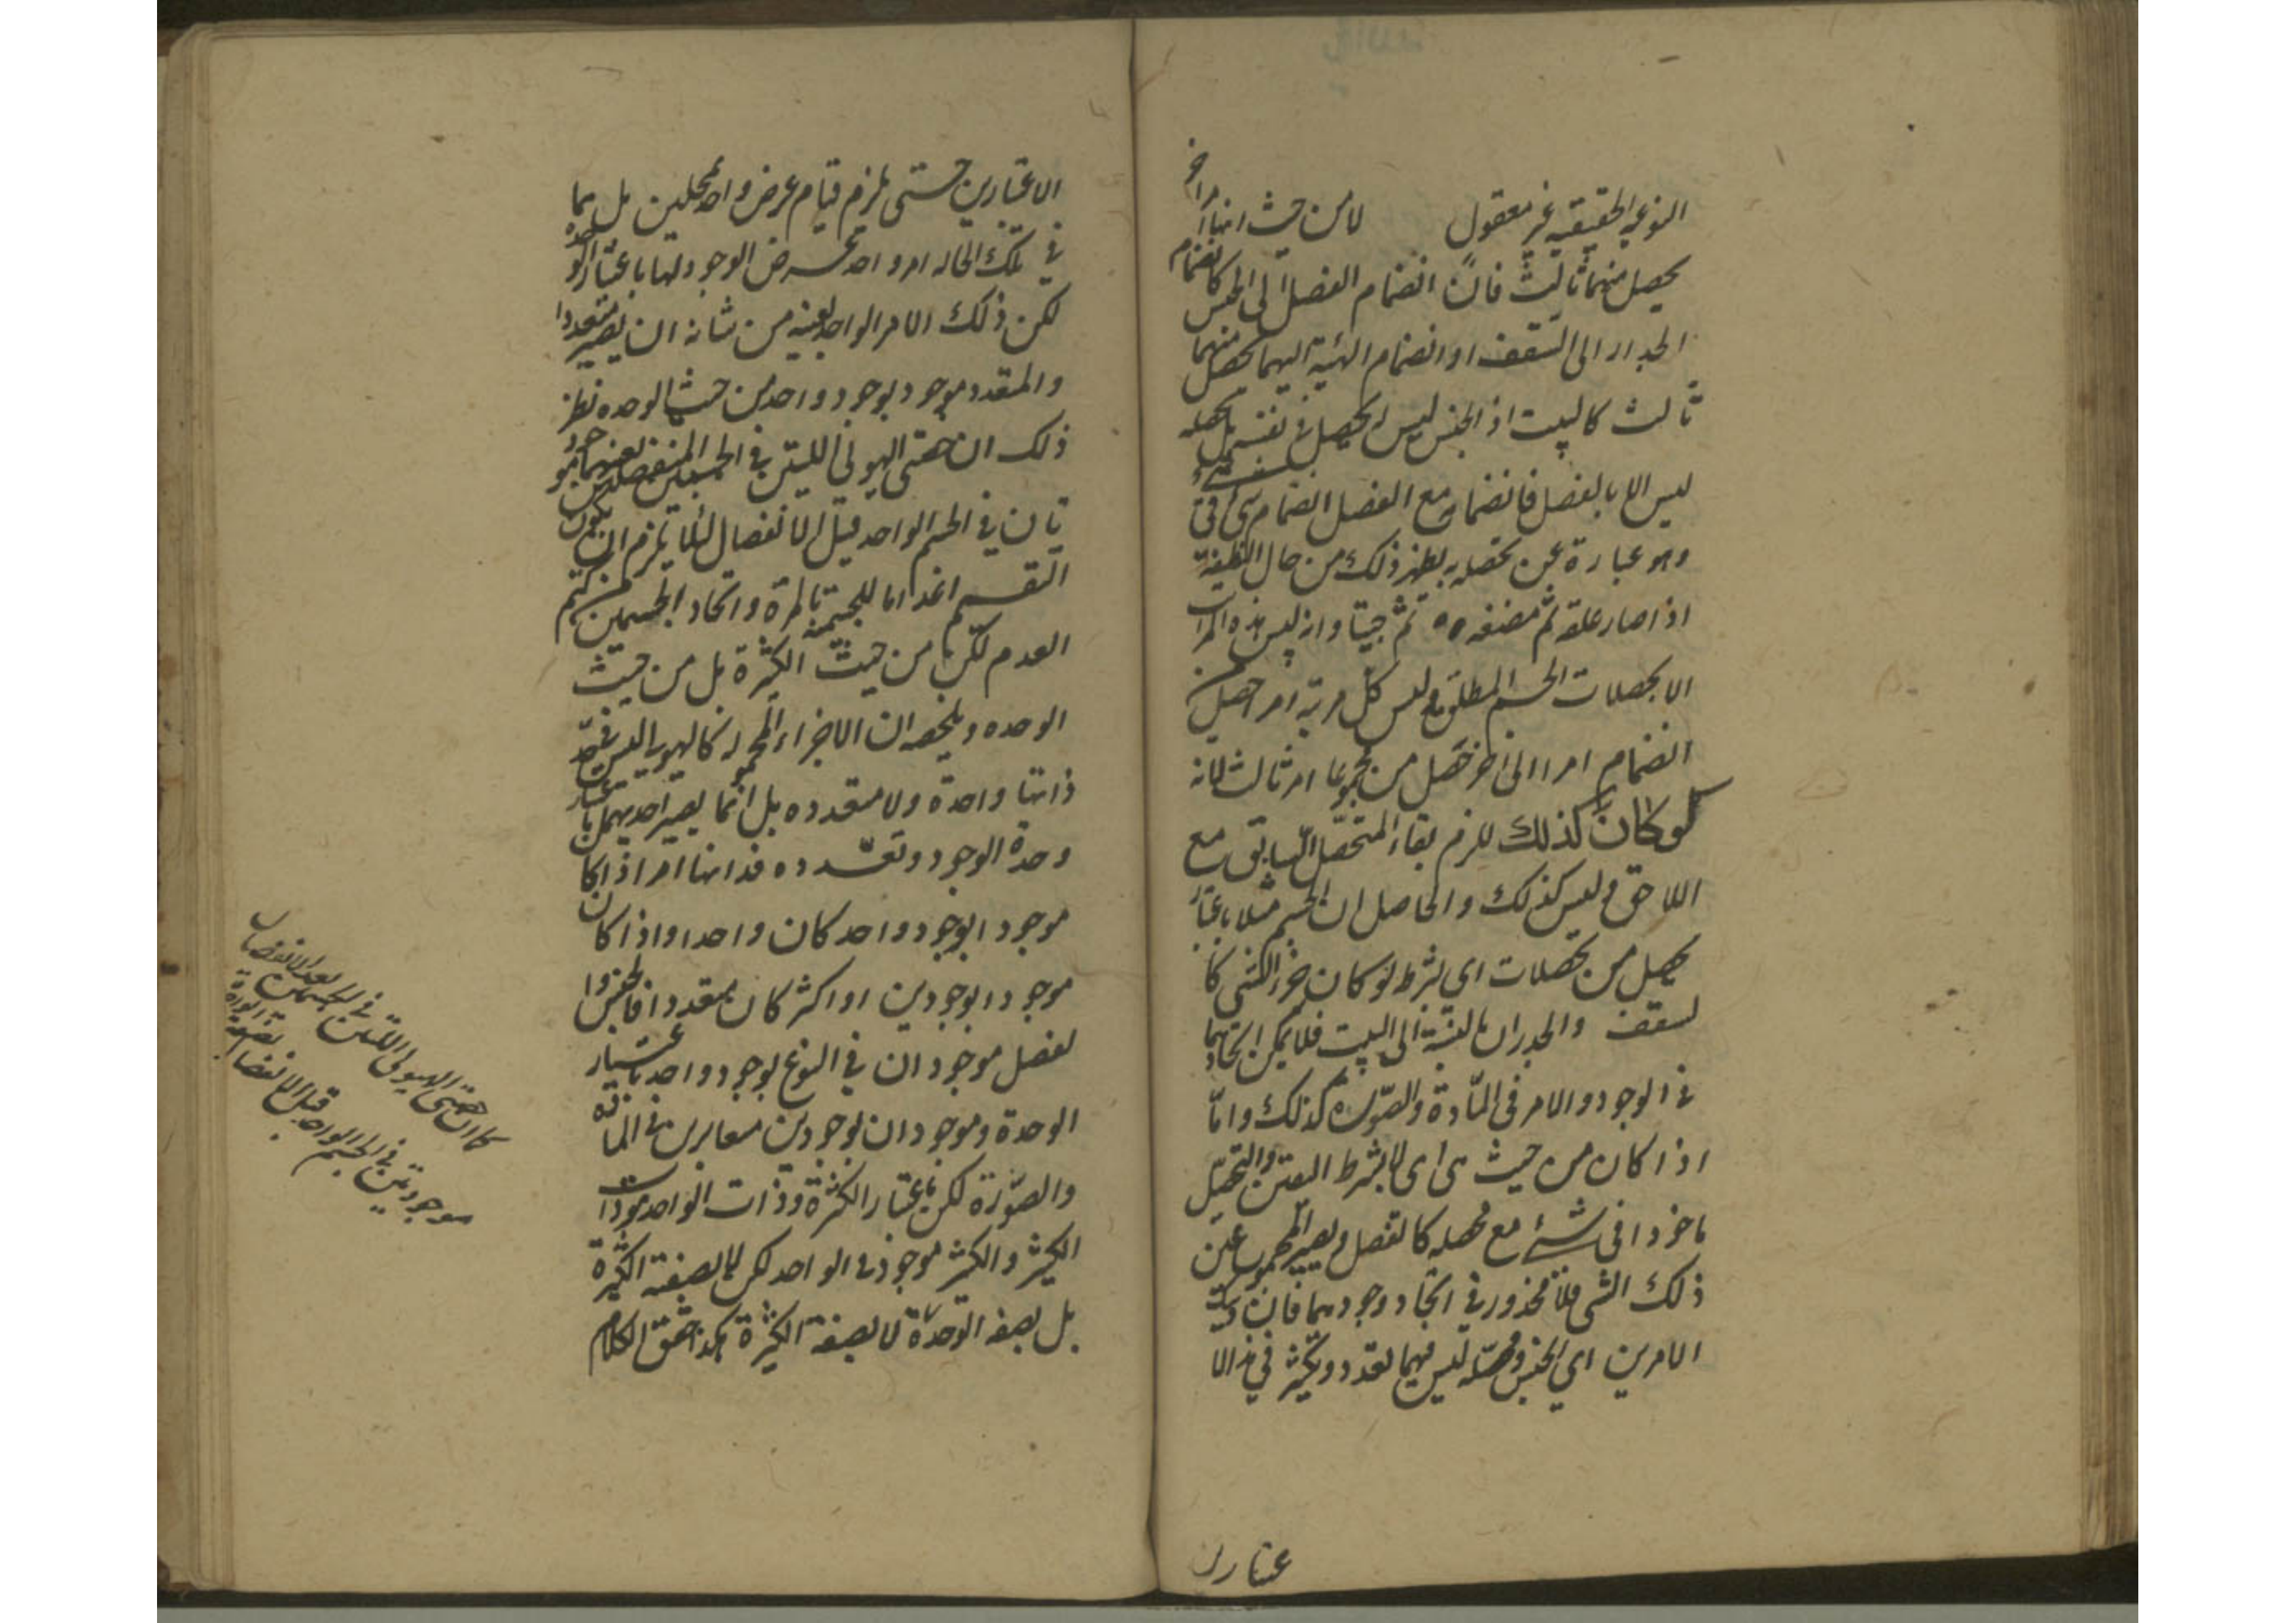 النوعية الحقيقية غير معقول لا من حيث انها امر اخر
يحصل منهما ثالث فان انضمام الفصل الى الجنس كانضمام
الجدار الى السقف او انضمام الهيئة اليهما يحصل منهما
ثالث كالبيت اذ الجنس ليس له تحصل في نفسه بل تحصله
ليس الا بالفصل فانضمامه مع الفصل انضمام شيء في
وهو عبارة عن تحصله يظهر ذلك من حال النطفة
اذا صار علقة ثم مضغه ثم جنينا وانه ليس هذه المراتب
الا تحصلات الجسم المطلق وليس كل مرتبة امر حصل من
انضمام امر الى اخر حصل من مجموعها امر ثالث لانه
لو كان كذلك للزم بقاء المتحصل السابق مع
اللاحق وليس كذلك والحاصل ان الجسم مثلا باعتبار
تحصل من تحصلات اي بشرط لو كان جزء الشي كا
لسقف والجدران بالنسبة الى البيت فلا يمكن اتحادهما
في الوجود والامر في المادة والصورة كذلك واما
اذا كان من حيث هي اي لا بشرط التعين والتحصل
ماخوذا في شيء مع محصله كالفصل ويصير المجموع عين
ذلك الشي فلا محذور في اتحاد وجودهما فان
الامرين اي الجنس ومحصله ليس فيهما تعدد وتكثر في هذا الا
عتبارين
الاعتبارين حتى يلزم قيام عرض واحد بمحلين بل هما
في تلك الحاله امر واحد يعرض الوجود لها باعتبار الوحده
لكن ذلك الامر الواحد بعينه من شانه ان يصير متعددا
والمتعدد موجود بوجود واحد من حيث الوحده نظير
ذلك ان حصتي الهيولى اللتين في الجسمين المنفصلين بعينهما موجود
تان في الجسم الواحد قبل الانفصال لئلا يلزم ان يكون
التقسيم اعداما للجسمية بالمرة واتحاد الجسمين من كتم
العدم لكن لا من حيث الكثرة بل من حيث
الوحده وتلخيصه ان الاجزاء المحموله كالهيولى ليس في حد
ذاتها واحدة ولا متعدده بل انما يصير احديهما باعتبار
وحدة الوجود وتعدده فذاتها امر اذا كان
موجودا بوجود واحد كان واحدا واذا كان
موجودا بوجودين او اكثر كان متعددا فالجنس وا
لفصل موجودان في النوع بوجود واحد باعتبار
الوحدة وموجودان بوجودين متغايرين في المادة
والصورة لكن باعتبار الكثرة وذات الواحد موجودات
الكثير والكثير موجود في الواحد لكن لا بصفته الكثرة
بل بصفه الوحدة لا بصفة الكثرة هكذا حقق الكلام
كما ان حصتي الهيولى اللتين في الجسمين بعد الانفصال
موجودتين في الجسم الواحد قبل الانفصال بصفة الوحدة